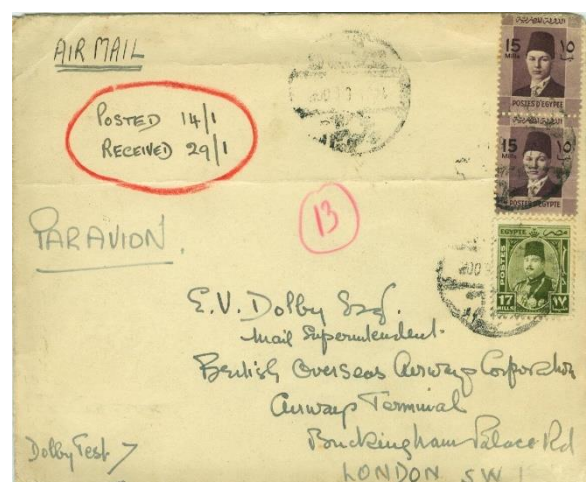 AIR MAIL
POSTED 14/1
RECEIVED 29/1
13
PAR AVION.
15
MILLS
١٥
POSTES D'EGYPTE
15
MILLS
١٥
POSTES D'EGYPTE
EGYPTE مصر
POSTES
17 ١٧
MILLS
E.V. Dolby Esq.
Mail Superintendent.
British Overseas Airways Corporation
Airways Terminal
Buckingham Palace Rd
LONDON SW1
Dolby Test 7